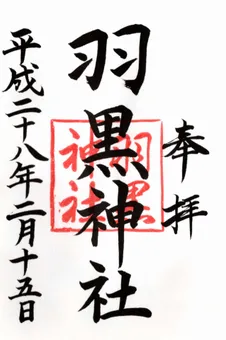 奉拝
羽黒神社
羽黒
神社
平成二十八年二月十五日